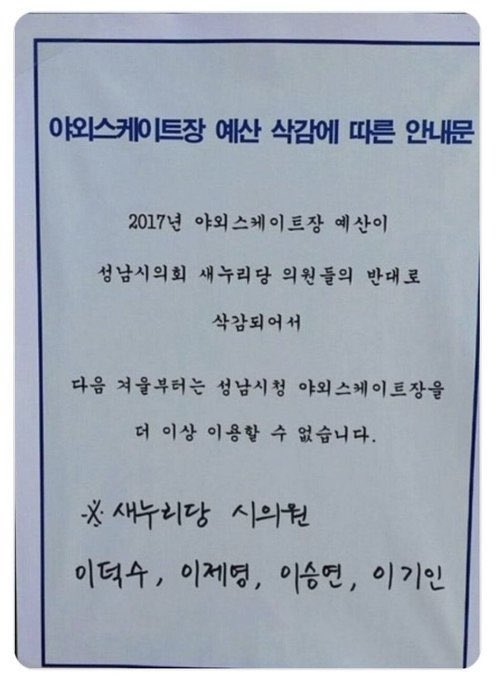 야외스케이트장 예산 삭감에 따른 안내문
2017년 야외스케이트장 예산이
성남시의회 새누리당 의원들의 반대로
삭감되어서
다음 겨울부터는 성남시청 야외스케이트장을
더 이상 이용할 수 없습니다.
※ 새누리당 시의원
이덕수, 이제영, 이승연, 이기인